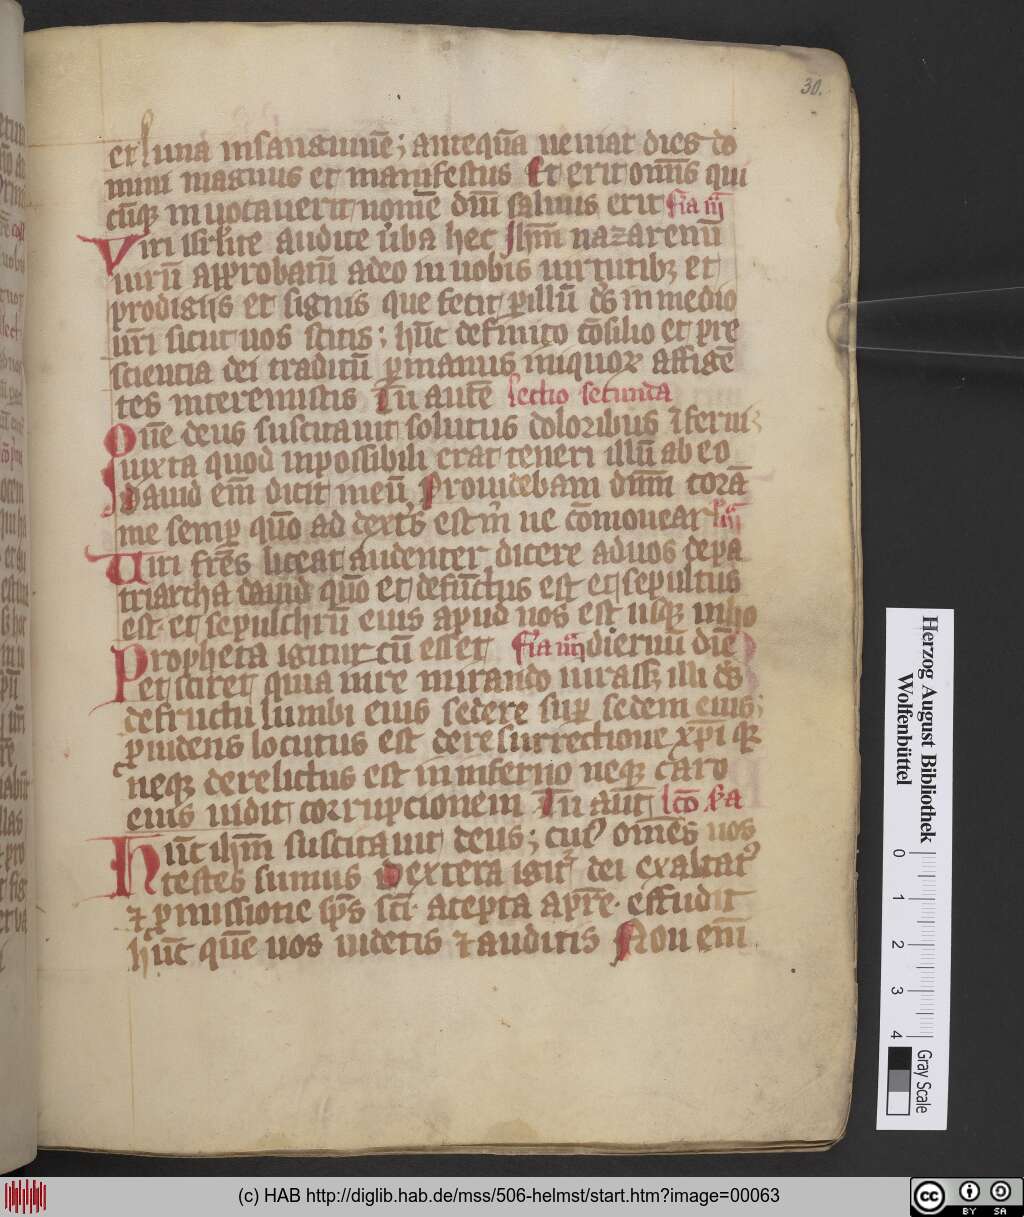 30.
et luna insanguinē; anteqūa veniat dies do
mini magnus et manifestus Et erit omīs qui
cūqꝫ invocaverit nomē dnī salvus erit fīa iij
Viri isrl'ite audite ūba hec Ihm̄ nazarenū
virū aꝓrobatū adeo in vobis virtutibꝫ et
prodigijs et signis que fecit ꝑillū ds̄ inmedio
vrī sicut vos scitis; hūc definito cōsilio et pre
scientia dei traditū ꝑmanus iniquoꝝ affigē
tes interemistis Tu autē Lectio secunda
Quē deus suscitavit solutus doloribus īferni
iuxta quod inpossibili erat teneri illū ab eo
david em̄ dicit in eū, Providebam dnm̄ corā
me semꝑ quō ad dextīs est m̄ ne cōmovear
Viri frēs liceat audenter dicere advos depa
triarcha david quō et defūctus est et sepultus
est et sepulchrū eius apud nos est usqꝫ inho
Propheta igitur cū esset fīa iiij diernū diē
et sciret quia iure iurando iurassꝫ illi ds̄
defructu lumbi eius sedere suꝑ sedem eius;
ꝓvidens locutus est deresurrectione xp̄i qꝫ
neqꝫ derelictus est ininferno neqꝫ caro
eius vidit corrupcionem Tu aūt lcō
Hūc ihm̄ suscitavit deus; cuiꝰ om̄es nos
testes sumus Dextera igitꝰ dei exaltatꝰ
⁊ ꝓmissione sp̄s scī accepta apr̄e effudit
hūc quē vos videtis ⁊ auditis Non em̄
Herzog August Bibliothek
Wolfenbüttel
0 1 2 3 4
Gray Scale
(c) HAB http://diglib.hab.de/mss/506-helmst/start.htm?image=00063
cc BY SA